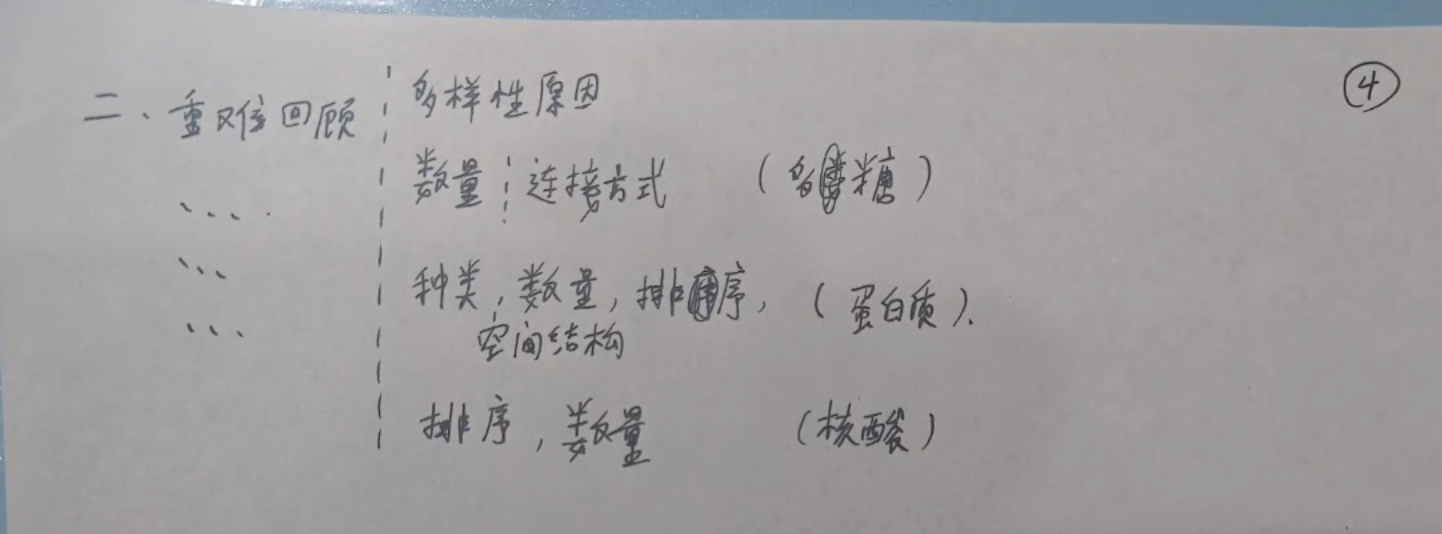 ④
二、重难回顾 多样性原因
数量 连接方式 （多糖）
.... 
种类，数量，排序，（蛋白质）.
...
空间结构
...
排序，数量 （核酸）